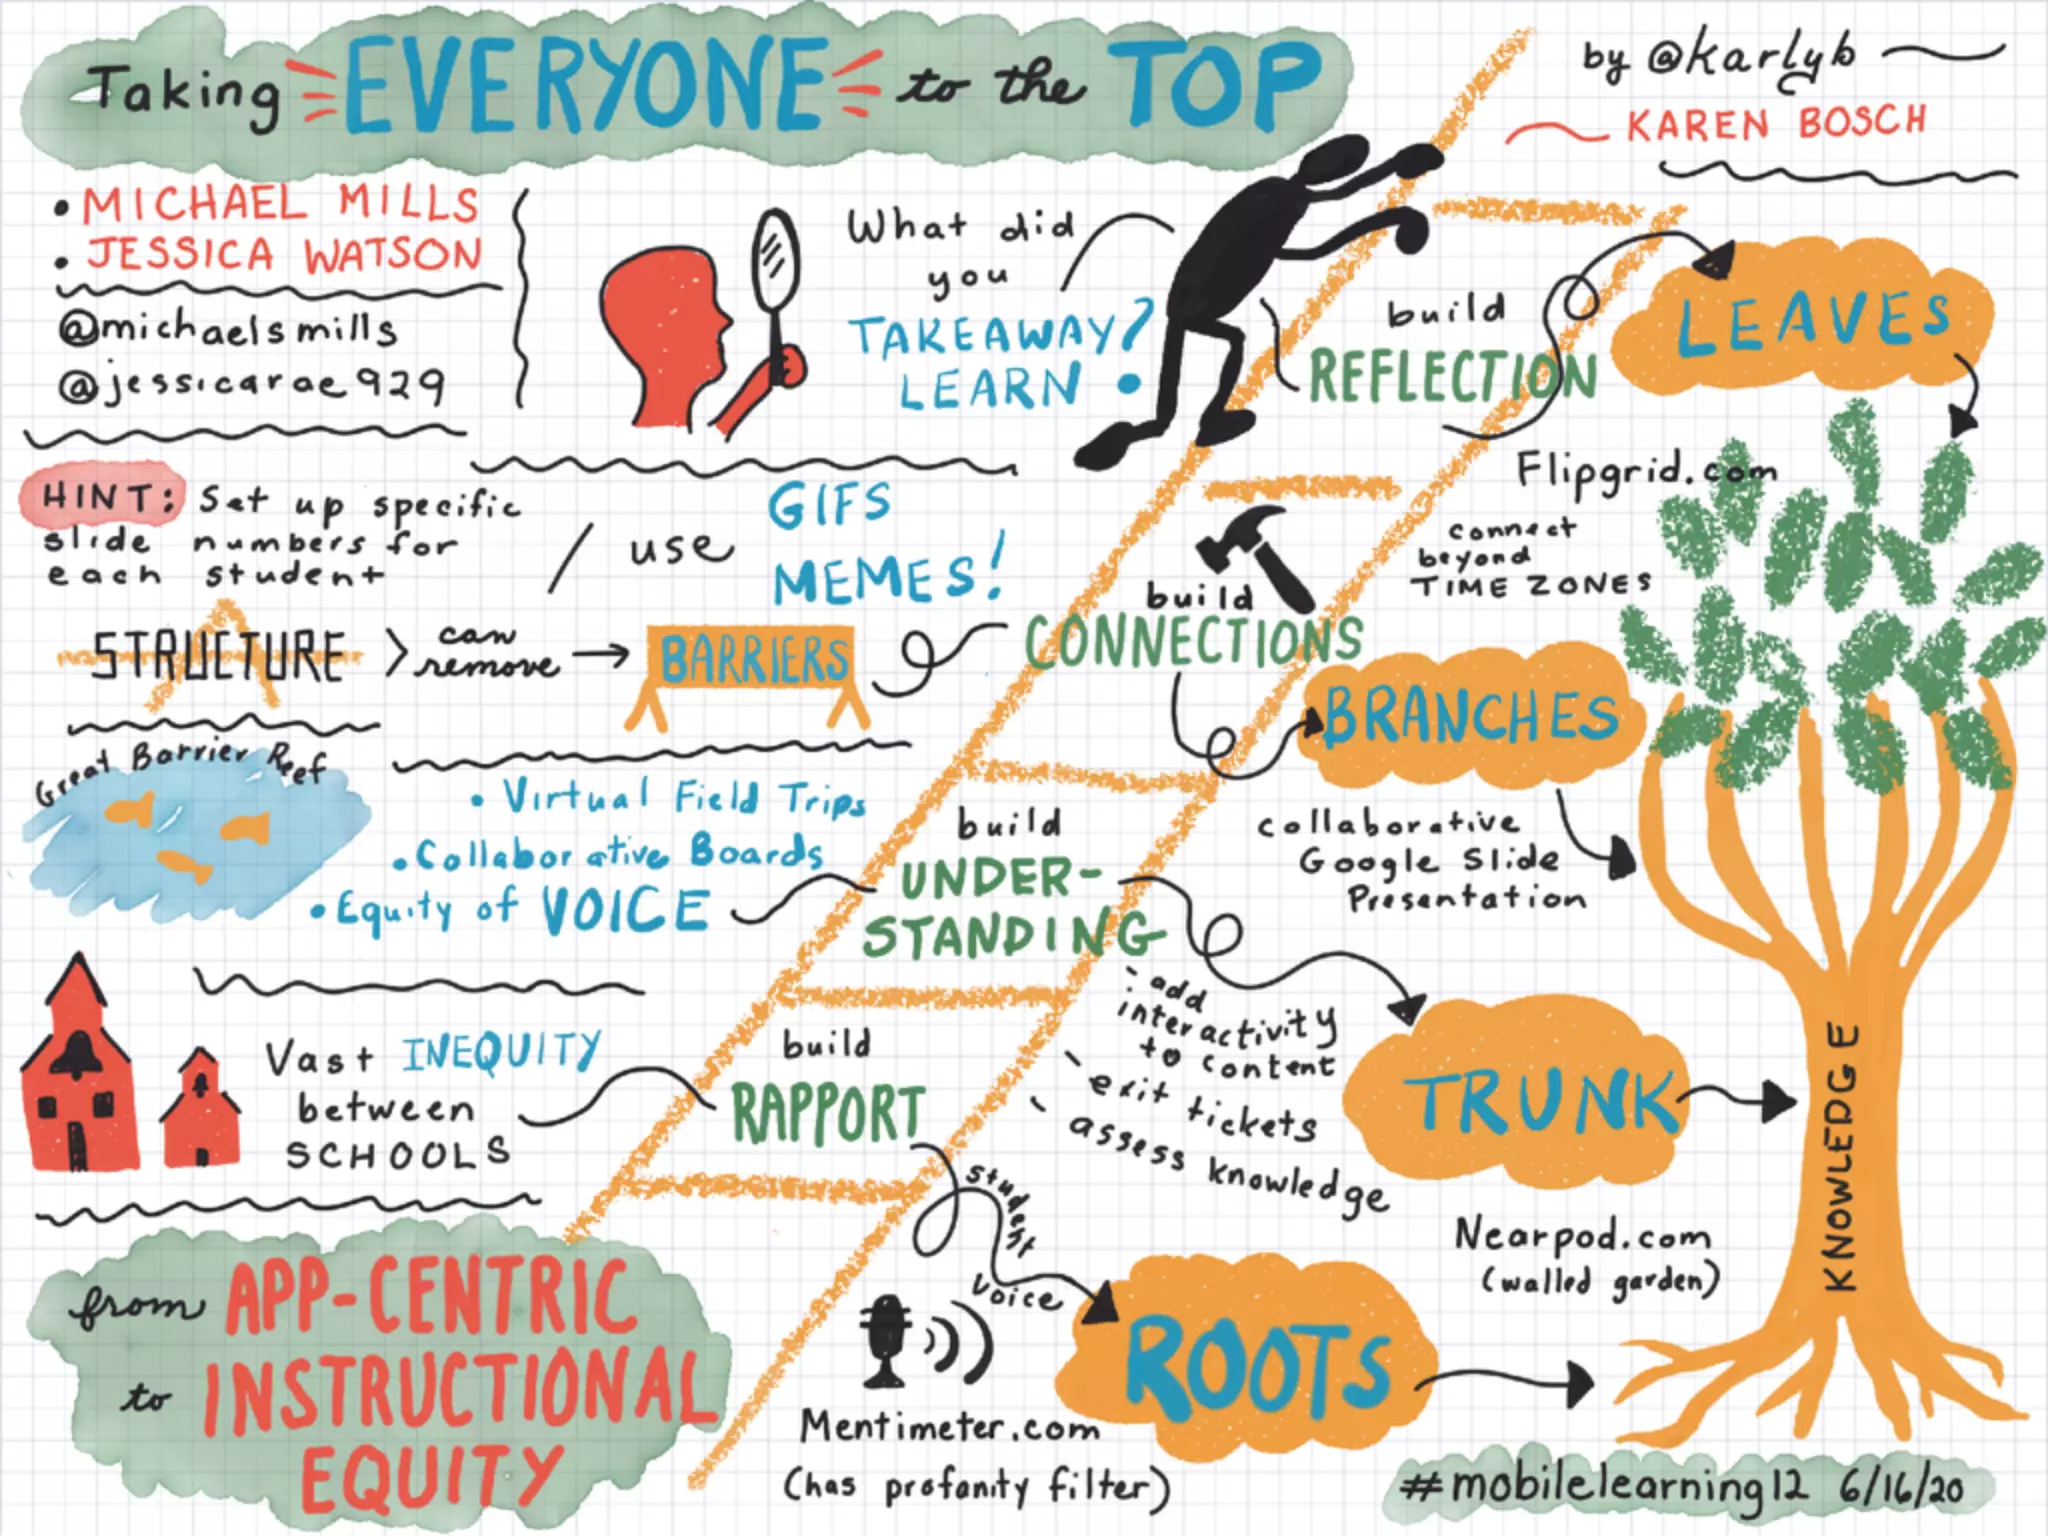 Taking EVERYONE to the TOP
by @karlyb
KAREN BOSCH
• MICHAEL MILLS
• JESSICA WATSON
@michaelsmills
@jessicarae929
What did
you
TAKEAWAY?
LEARN
build
REFLECTION
LEAVES
Flipgrid.com
connect
beyond
TIME ZONES
HINT: Set up specific
slide numbers for
each student
/ use GIFS
MEMES!
STRUCTURE > can
remove → BARRIERS
build
CONNECTIONS
BRANCHES
collaborative
Google Slide
Presentation
Great Barrier Reef
• Virtual Field Trips
• Collaborative Boards
• Equity of VOICE
build
UNDER-
STANDING
- add
interactivity
to content
- exit tickets
- assess knowledge
TRUNK
KNOWLEDGE
Nearpod.com
(walled garden)
Vast INEQUITY
between
SCHOOLS
build
RAPPORT
student
voice
ROOTS
Mentimeter.com
(has profanity filter)
from APP-CENTRIC
to INSTRUCTIONAL
EQUITY
#mobilelearning12 6/16/20